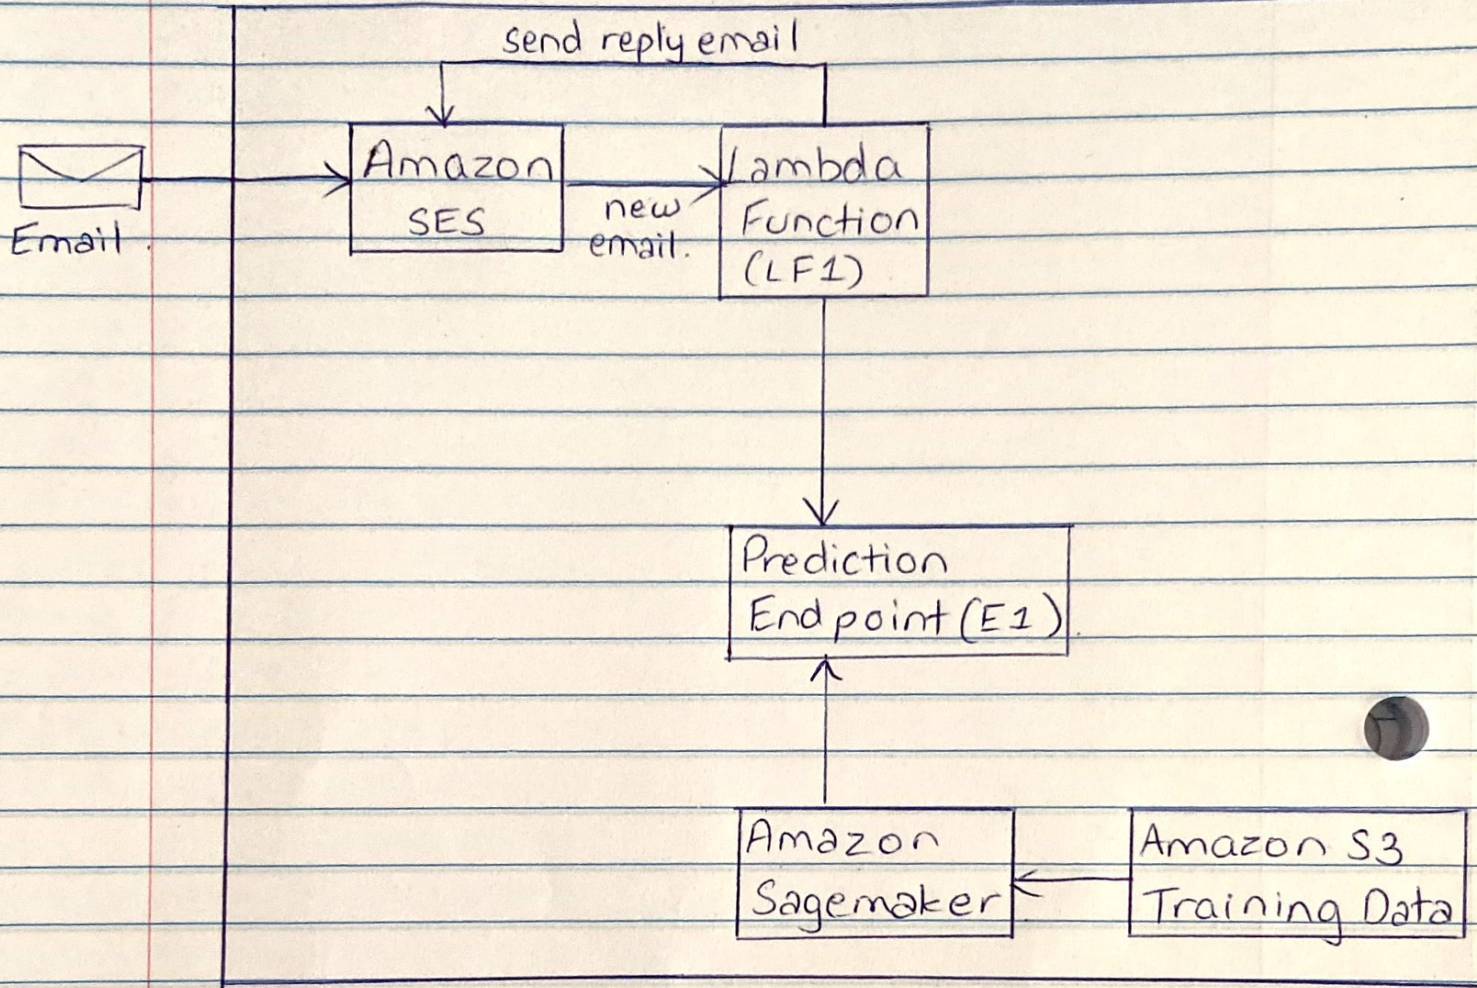 send reply email
Amazon
SES
Email
new
email.
Lambda
Function
(LF1)
Prediction
Endpoint (E1)
Amazon
Sagemaker
Amazon S3
Training Data